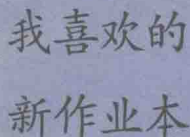 我喜欢的
新作业本